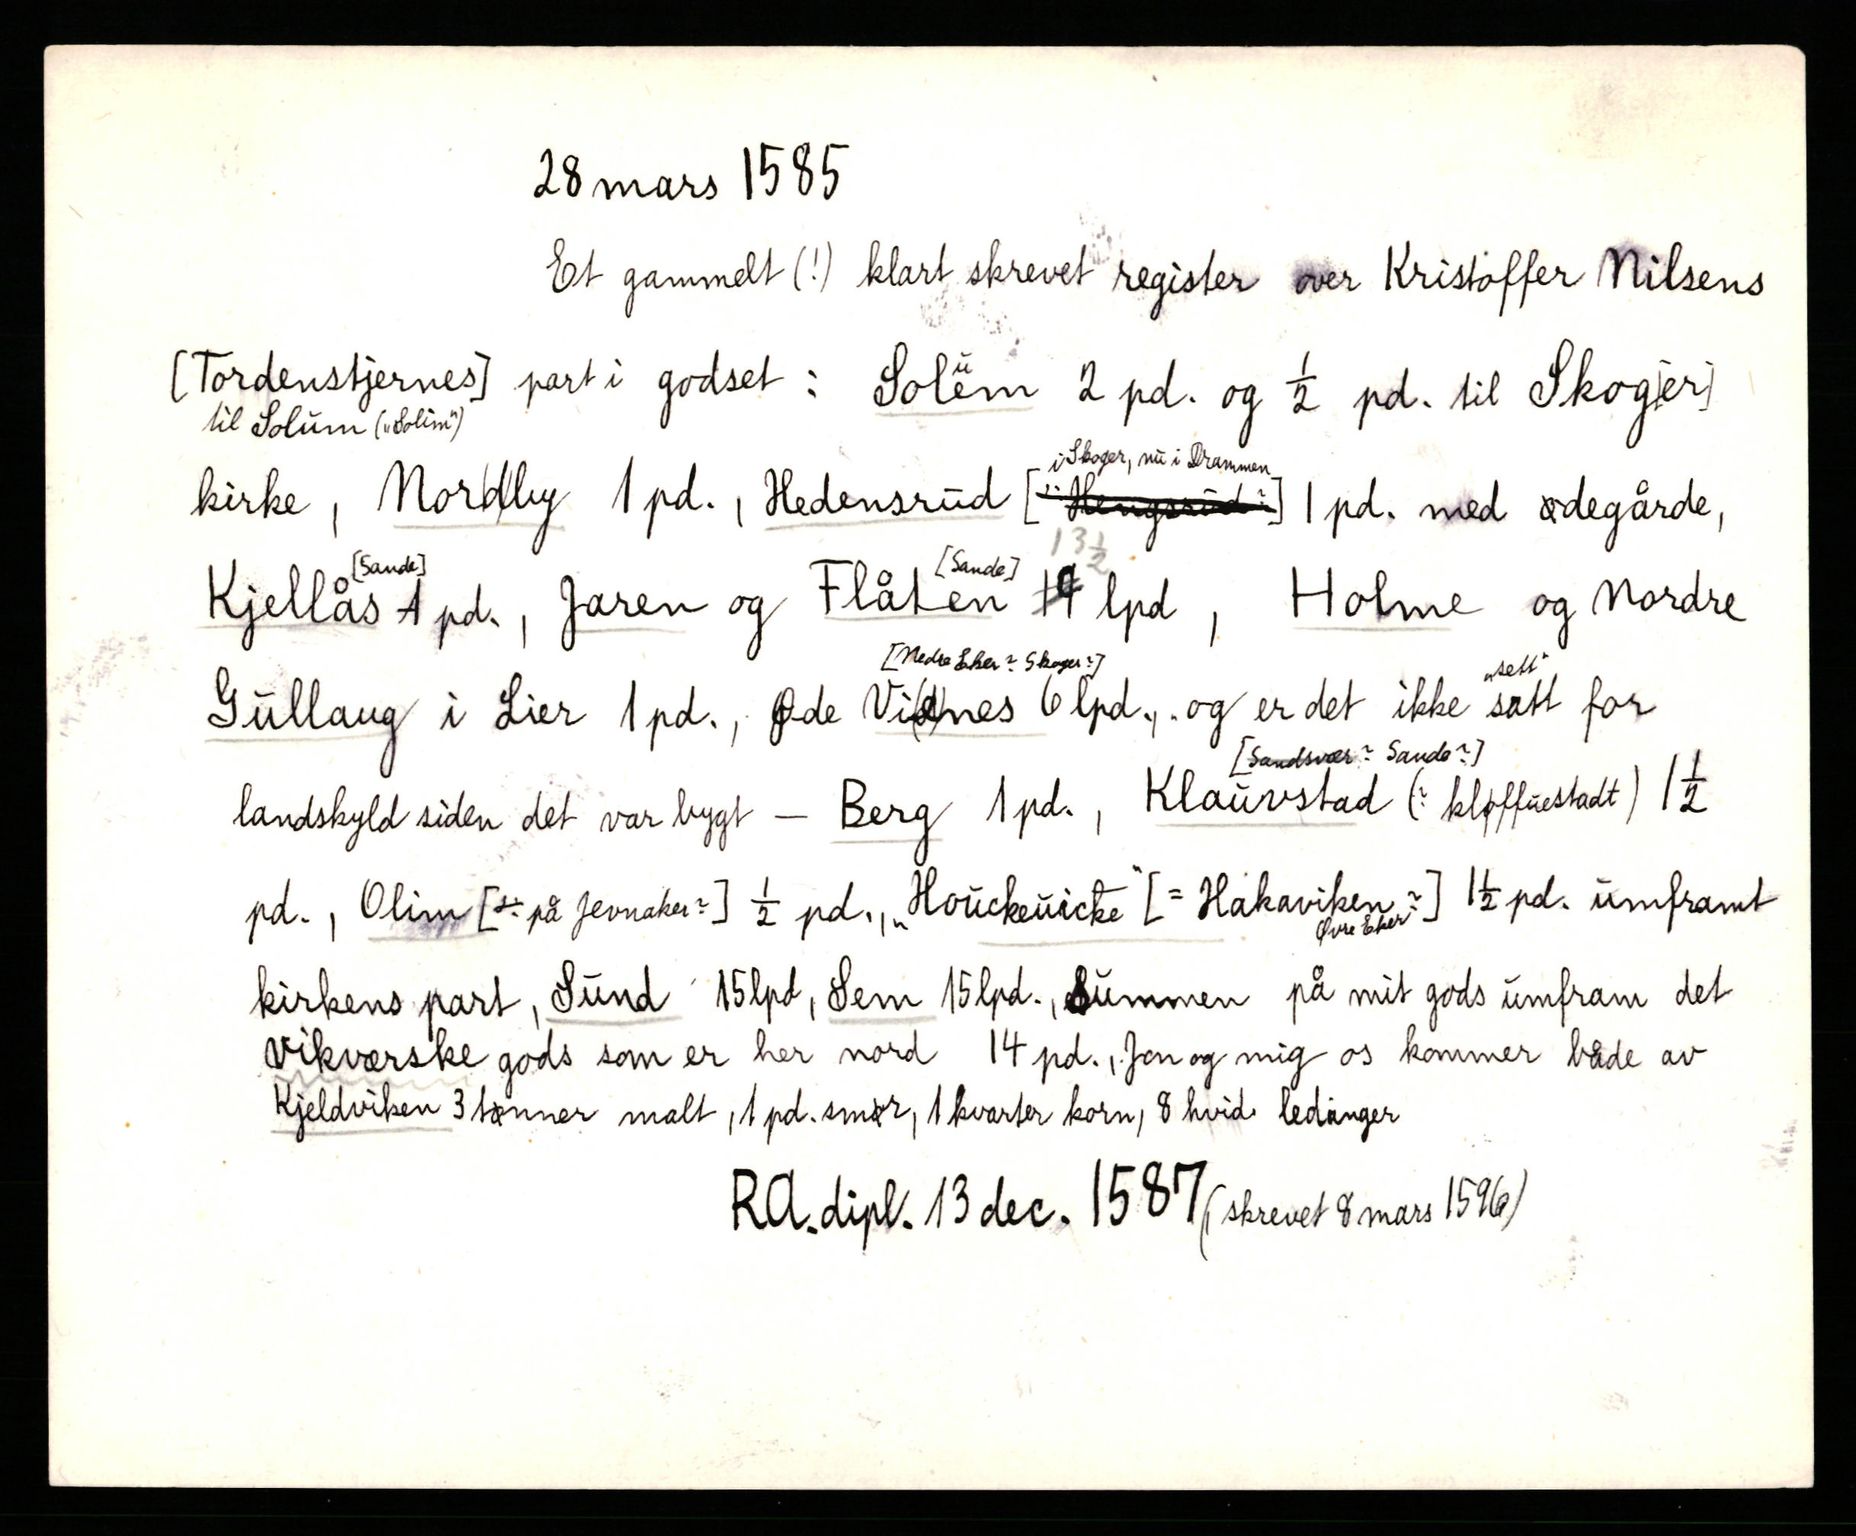 28 mars 1585
Et gammelt (!) klart skrevet register over Kristoffer Nilsens
[Tordenstjernes] part i godset : Solem 2 pd. og ½ pd. til Skog[er]
til Solum („Solim“)
i Skoger, nu i Drammen
kirke, Nordby 1 pd., Hedensrud [Hengsrud?] 1 pd. med ødegårde,
[Sande] [Sande] 13½
Kjellås 1 pd., Jaren og Flåten lpd, Holme og Nordre
[Nedre Eker? Skoger?] „sett“
Gullaug i Lier 1 pd., Øde Vi(d)nes 6 lpd., og er det ikke satt for
[Sandsvær? Sande?]
landskyld siden det var bygt — Berg 1 pd., Klauvstad (? kløffuestadt) 1½
pd., Olim [på Jevnaker?] ½ pd., „Houckeuicke“ [= Hakaviken?] 1½ pd. umframt
Øvre Eker
kirkens part, Sund 15 lpd, Sem 15 lpd., Summen på mit gods umfram det
Vikværske gods som er her nord 14 pd., Jon og mig os kommer både av
Kjeldviken 3 tønner malt, 1 pd. smør, 1 kvarter korn, 8 hvid. ledinger
RA. dipl. 13 dec. 1587 (skrevet 8 mars 1596)